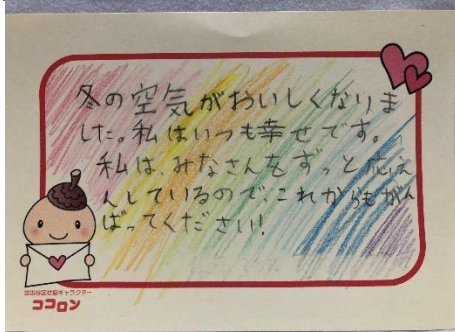 冬の空気がおいしくなりま
した。私はいつも幸せです。
私は、みなさんをずっと応え
んしているので、これからもがん
ばってください!
ココロン